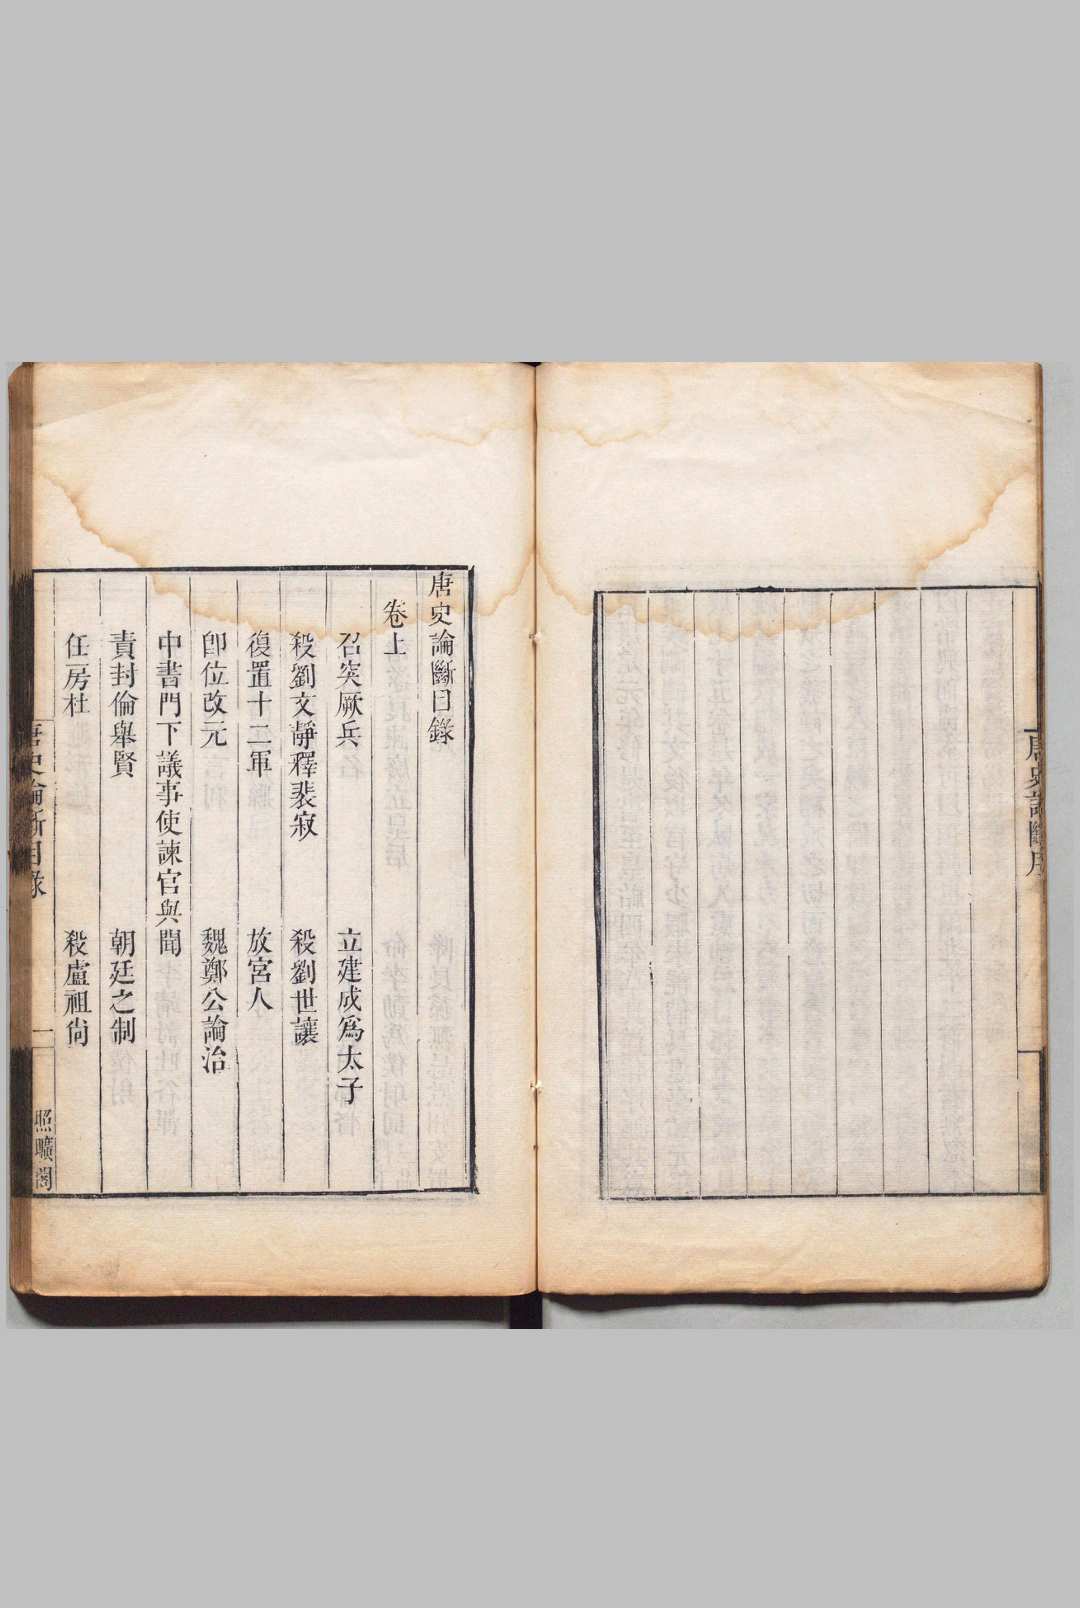 唐史論斷序
唐史論斷目錄
卷上
召突厥兵　立建成爲太子
殺劉文靜釋裴寂　殺劉世讓
復置十二軍　放宮人
卽位改元　魏鄭公論治
中書門下議事使諫官與聞
責封倫舉賢　朝廷之制
任房杜　殺盧祖尙
唐史論斷目錄　一　照曠閣